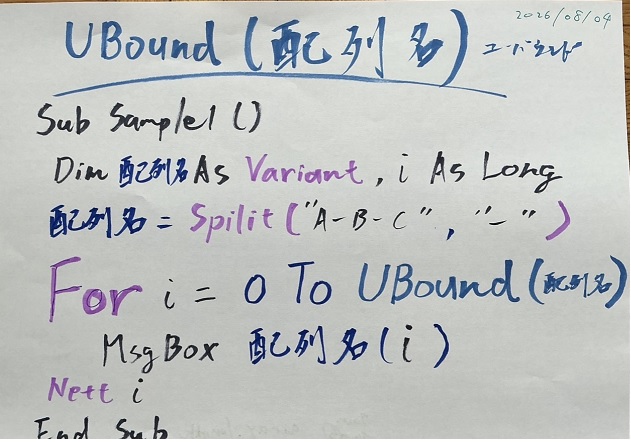 2026/08/04
UBound (配列名) ユーバウンド
Sub Sample1 ()
Dim 配列名 As Variant, i As Long
配列名 = Spilit ("A-B-C", "-")
For i = 0 To UBound (配列名)
MsgBox 配列名 (i)
Next i
End Sub